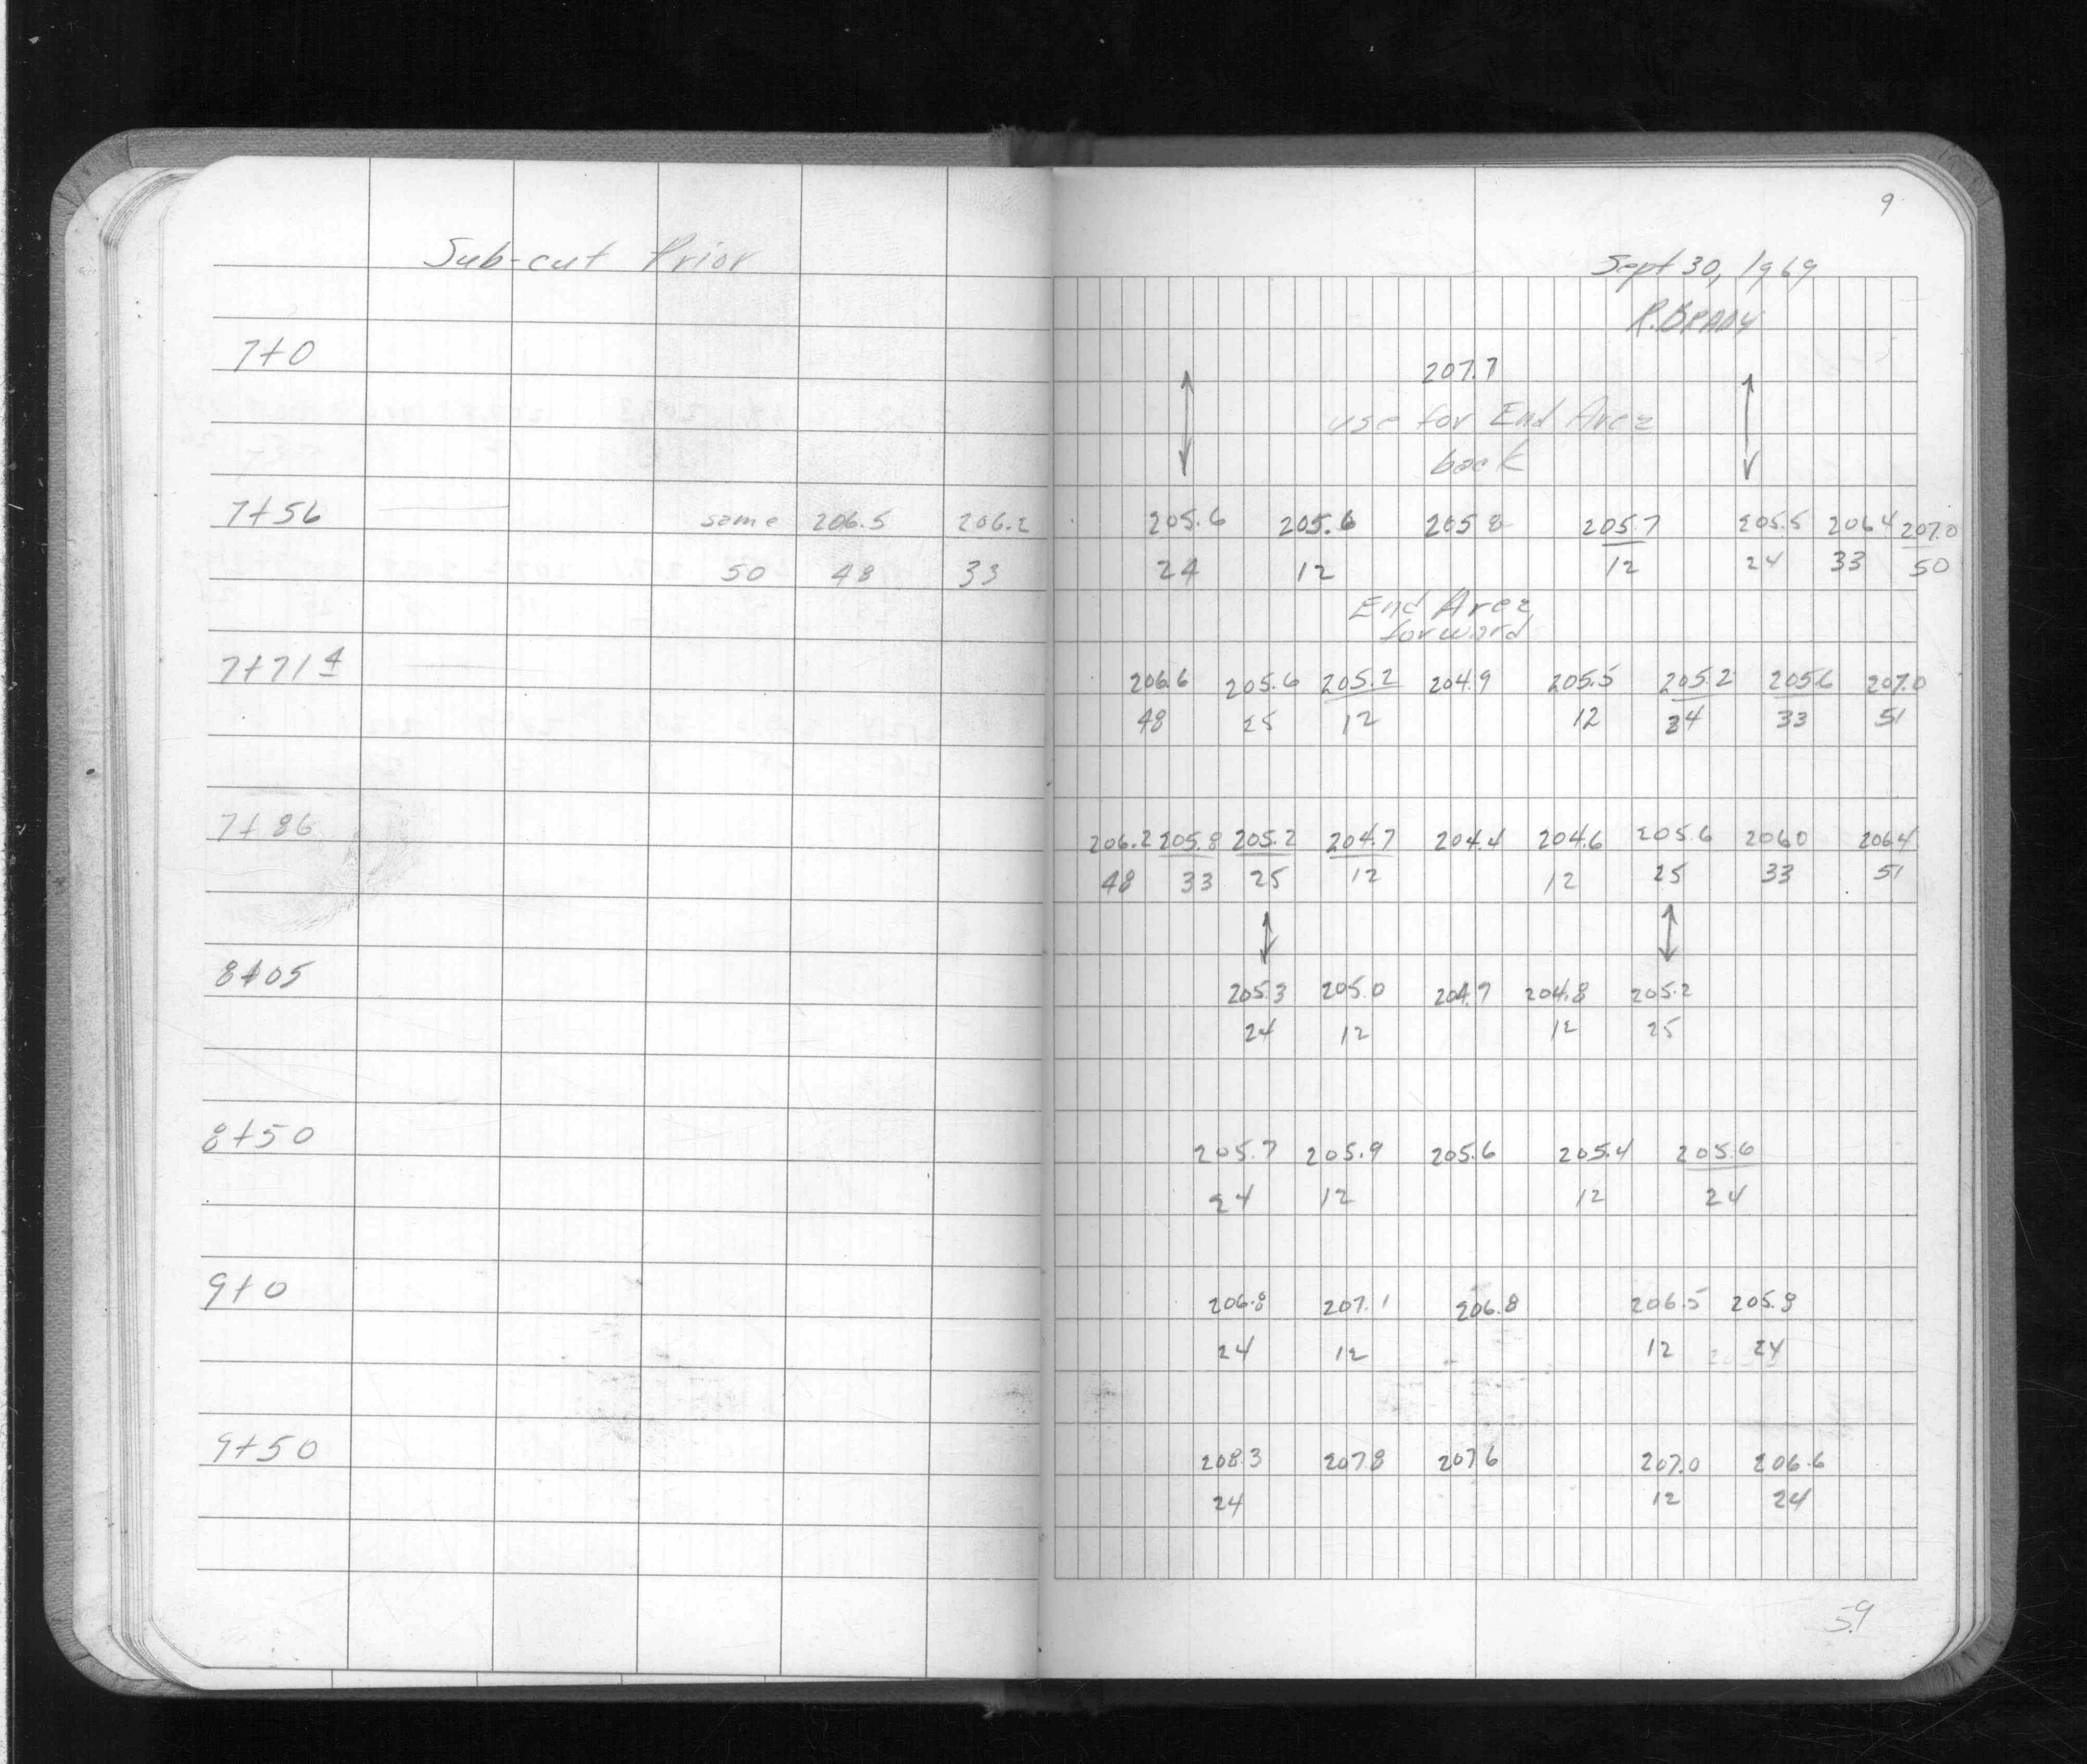 9
Sub-cut Prior
Sept 30, 1969
R. BRADY
7+0 207.7
use for End Area
back
7+56 same 206.5 206.2 205.6 205.6 205.8 205.7 205.5 206.4 207.0
50 48 33 24 12 12 24 33 50
End Area
forward
7+71 4 206.6 205.6 205.2 204.9 205.5 205.2 205.6 207.0
48 25 12 12 24 33 51
7+86 206.2 205.8 205.2 204.7 204.4 204.6 205.6 206.0 206.4
48 33 25 12 12 25 33 51
8+05 205.3 205.0 204.7 204.8 205.2
24 12 12 25
8+50 205.7 205.9 205.6 205.4 205.6
24 12 12 24
9+0 206.8 207.1 206.8 206.5 205.8
24 12 12 24
9+50 208.3 207.8 207.6 207.0 206.6
24 12 24